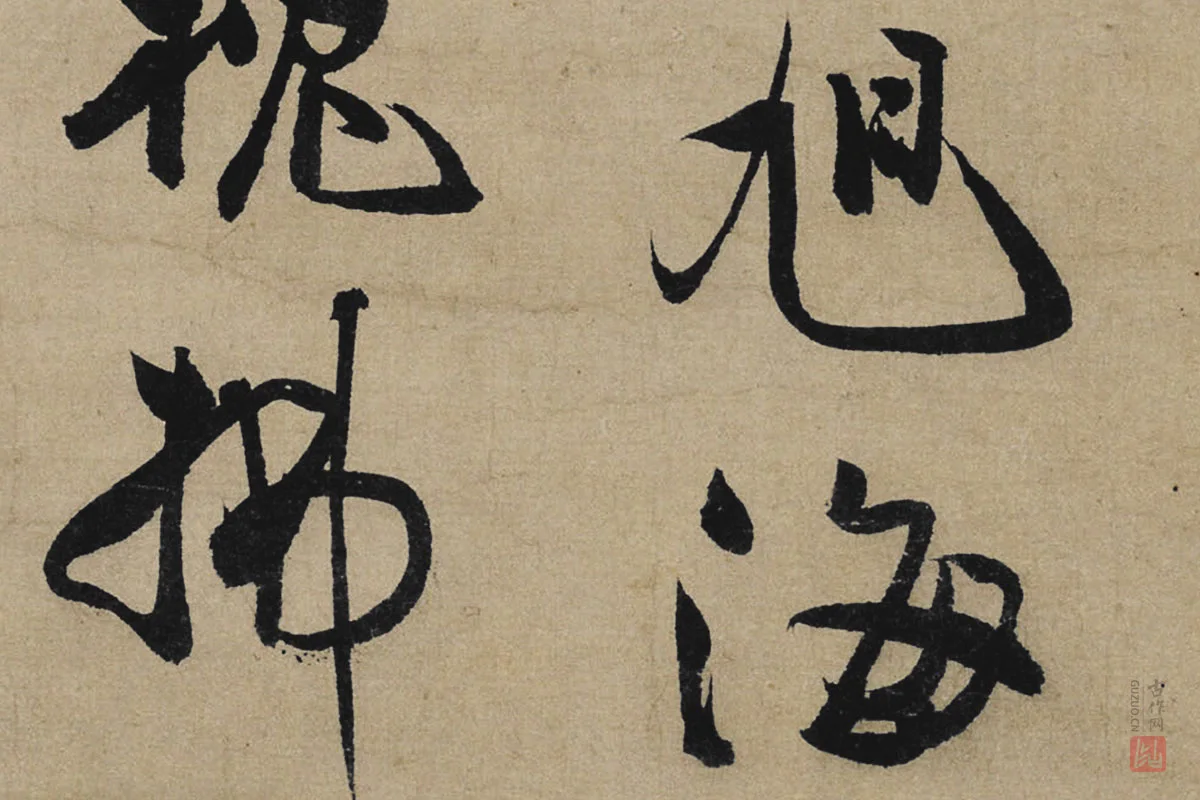 旭海
拂
古作网
GUZUO.CN